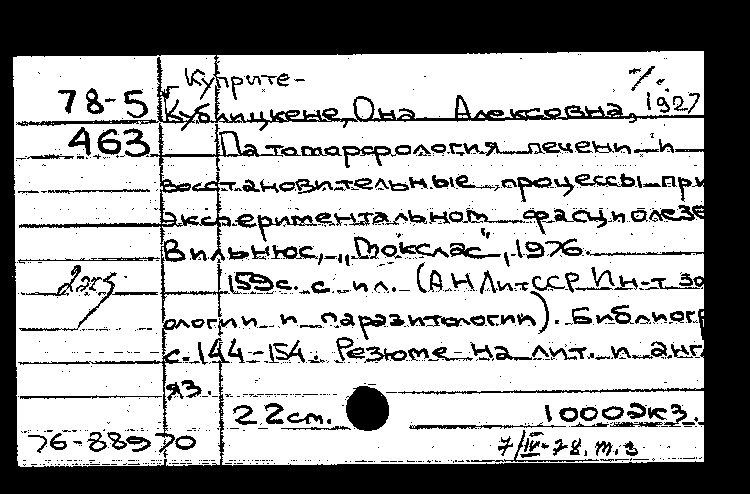 Куприте-
78-5 Кублицкене, Она Алексовна, 1927
463 Патоморфология печени и
восстановительные процессы при
экспериментальном фасциолезе
Вильнюс, „Мокслас", 1976.
2экз 159с. с ил. (АН ЛитССР Ин-т зо
ологии и паразитологии). Библиогр
с. 144-154. Резюме на лит. и англ
яз.
22см. 1000экз.
76-88970 7/IV-78. т. з